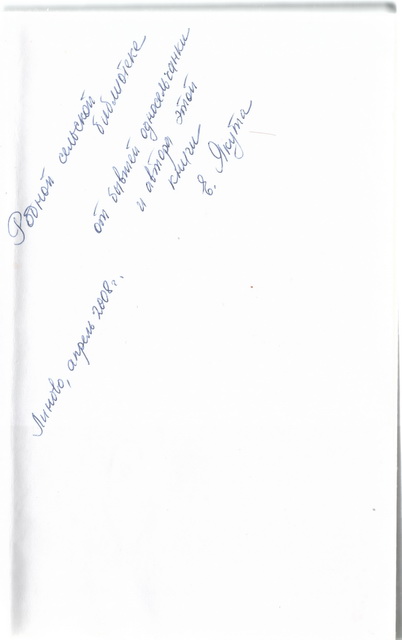 Родной сельской
библиотеке
от бывшей односельчанки
и автора этой
книги
Е. Якута
Линово, апрель 2008 г.